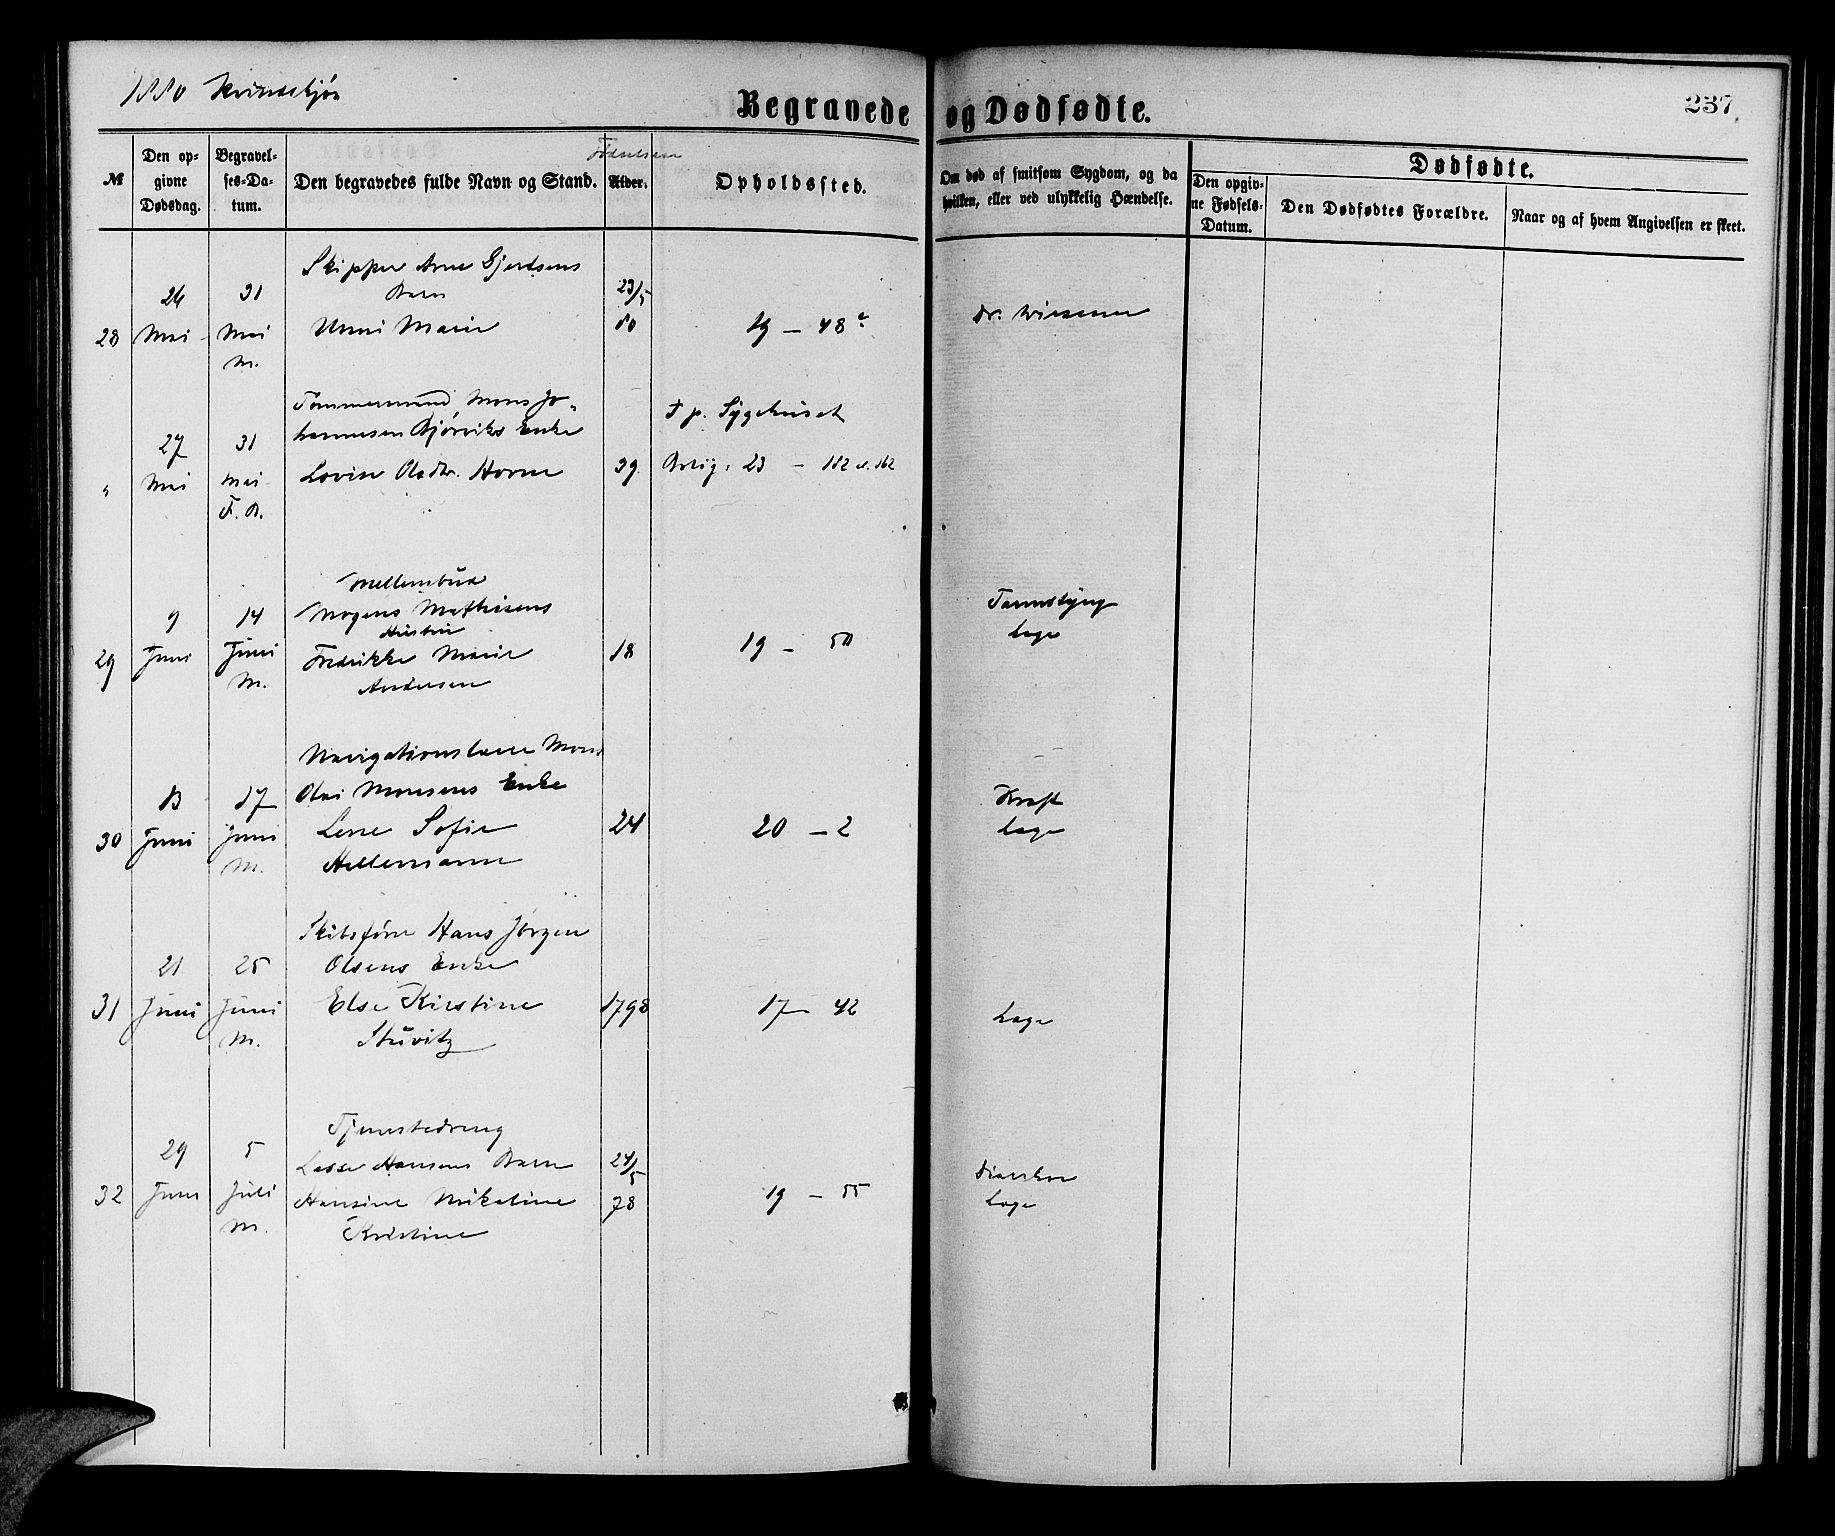 1880 Kvindekjøn
Begravede og Dødfødte.
237
№
Den op-
givne
Dødsdag.
Begravel-
ses-Da-
tum.
Den begravedes fulde Navn og Stand.
Fødselsaar
Alder.
Opholdssted.
Om død af smitsom Sygdom, og da
hvilken, eller ved ulykkelig Hændelse.
Dødfødte.
Den opgiv-
ne Fødsels-
Datum.
Den Dødfødtes Forældre.
Naar og af hvem Angivelsen er skeet.
28
26
Mai
31
Mai
M.
Skipper Arne Gjertsens
Barn
Unni Marie
23/5
80
19 – 48
Dr. Wiesener
"
27
Mai
31
Mai
F. B.
Tømmermand Mons Jo-
hannesen Bjørviks Enke
Lovise Olsdtr. Horne
39
F p. Sygehuset
Bolig: 23 – 182
29
9
Juni
14
Juni
M.
Mellembud
Mogens Mathisens
Hustru
Fredrikke Marie
Andersen
18
19 – 50
Læge
30
13
Juni
17
Juni
M.
Navigationslærer Mons
Olai Monsens Enke
Lene Sofie
Hellemann
24
20 – 2
Kraft
Læge
31
21
Juni
25
Juni
M.
Skibsfører Hans Jørgen
Olsens Enke
Else Kirstine
Stuvitz
1798
17 – 42
Læge
32
29
Juni
5
Juli
M.
Tjenestedreng
Lasse Hansens Barn
Hansine Nikoline
Kristine
24/5
78
19 – 55
Læge